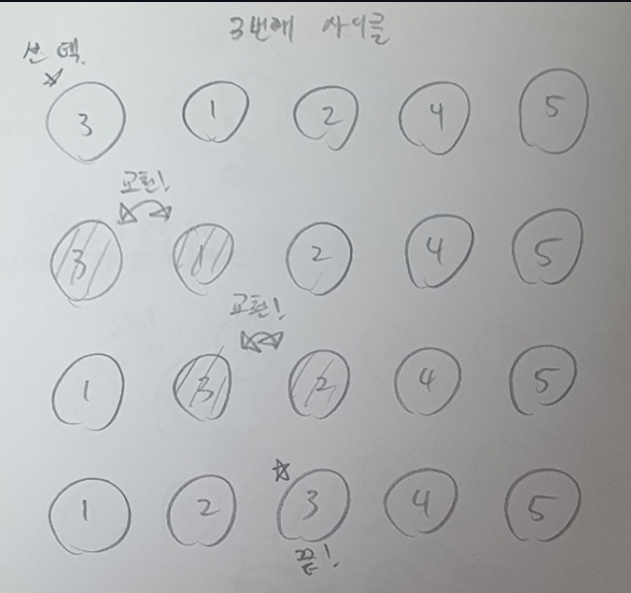 3번째 사이클
선택
3 1 2 4 5
교환!
3 1 2 4 5
교환!
1 3 2 4 5
1 2 3 4 5
끝!